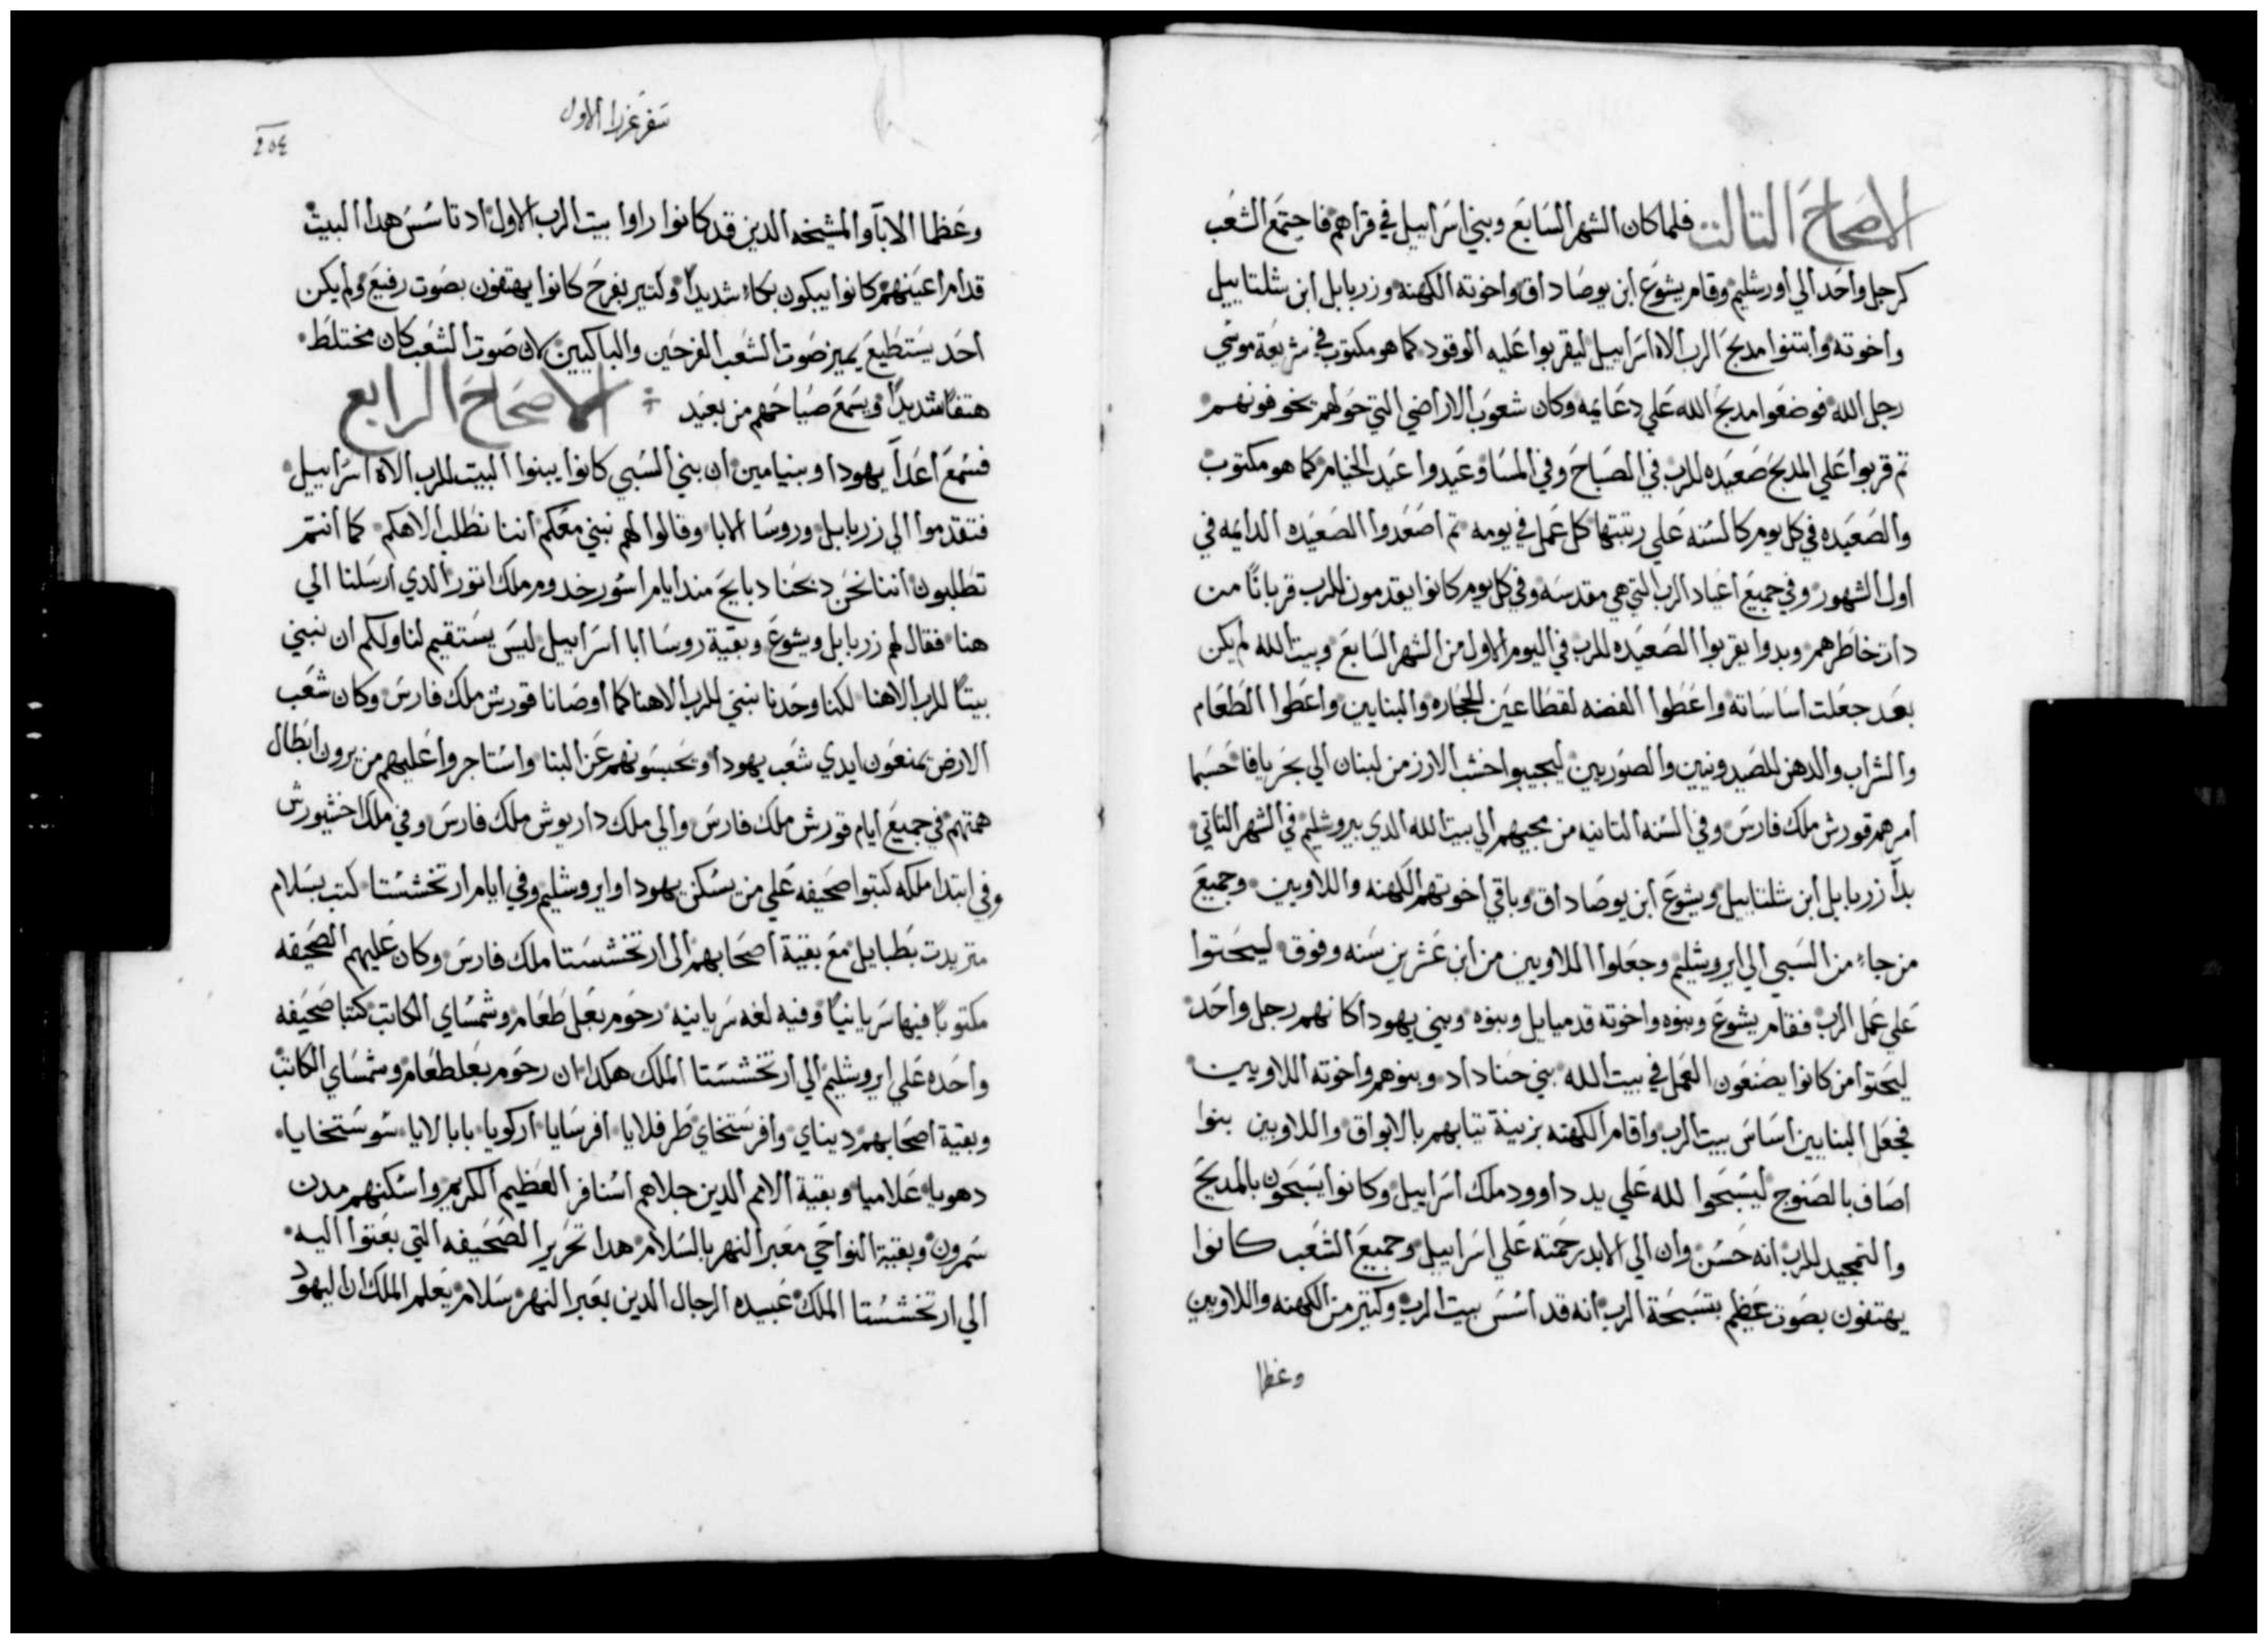 الاصحاح التالت فلما كان الشهر السابع وبني اسراييل في قراهم فاجتمع الشعب
كرجل واحد الي اورشليم وقام يشوع ابن يوصاداق واخوته الكهنه وزربابل ابن شلتاييل
واخوته وابتنوا مدبح الرب الاه اسراييل ليقربوا عليه الوقود كما هو مكتوب في شريعة موسي
رجل الله فوضعوا مدبح الله علي دعايمه وكان شعوب الاراضي التي حولهم تخوفونهم
تم قربوا علي المدبح صعيده للرب في الصباح وفي المسا وعيدوا عيد الخيام كما هو مكتوب
والصعيده في كل يوم كالسنه علي رتبتها كل عمل في يومه تم اصعدوا الصعيده الدايمه في
اول الشهور وفي جميع اعياد الرب التي هي مقدسه وفي كل يوم كانوا يقدمون للرب قربانًا من
دات خاطرهم وبدوا يقربوا الصعيده للرب في اليوم الاول من الشهر السابع وبيت الله لم يكن
بعد جعلت اساساته واعطوا الفضه لقطاعين الحجاره والبنايين واعطوا الطعام
والشراب والدهن للصيدونيين والصوريين ليجيبوا خشب الارز من لبنان الي بحر يافا حسبما
امرهم قورش ملك فارس وفي السنه التانيه من مجيهم الي بيت الله الدي بيروشليم في الشهر التاني
بدا زربابل ابن شلتاييل ويشوع ابن يوصاداق وباقي اخوتهم الكهنه واللاويين وجميع
من جاء من السبي الي ايروشليم وجعلوا اللاويين من ابن عشرين سنه وفوق ليحتوا
علي عمل الرب فقام يشوع وبنوه واخوته قدميايل وبنوه وبني يهودا كانهم رجل واحد
ليحتوا من كانوا يصنعون العمل في بيت الله بني حناداد وبنوهم واخوته اللاويين
فجعل البنايين اساس بيت الرب واقام الكهنه بزينة تيابهم بالابواق واللاويين بنوا
اصاف بالصنوج ليسبحوا لله علي يد داوود ملك اسراييل وكانوا يسبحون بالمديح
والتمجيد للرب انه حسن وان الي الابد رحمته علي اسراييل وجميع الشعب كانوا
يهتفون بصوت عظيم بتسبحة الرب انه قد اسس بيت الرب وكتير من الكهنه واللاويين
وعظما
سفر عزرا الاول
٢٥٤
وعظما الابآ والمشيخه الدين قد كانوا راوا بيت الرب الاول اد تاسس هدا البيت
قدام اعينهم كانوا يبكون بكاء شديدًا وكتير بفرح كانوا يهتفون بصوت رفيع ولم يكن
احد يستطيع يميز صوت الشعب الفرحين والباكيين لان صوت الشعب كان مختلط
هتفًا شديدًا ويسمع صياحهم من بعيد الاصحاح الرابع
فسمع اعدآ يهودا وبنيامين ان بني السبي كانوا يبنوا البيت للرب الاه اسراييل
فتقدموا الي زربابل وروسا الابا وقالوا لهم نبني معكم اننا نطلب الاهكم كما انتم
تطلبون اننا نحن دبحنا دبايح مند ايام اسور خدوم ملك اتور الدي ارسلنا الي
هنا فقال لهم زربابل ويشوع وبقية روسا ابا اسراييل ليس يستقيم لنا ولكم ان نبني
بيتًا للرب الاهنا لكنا وحدنا نبني للرب الاهنا كما اوصانا قورش ملك فارس وكان شعب
الارض يمنعون ايدي شعب يهودا ويحبسونهم عن البنا واستاجروا عليهم من يرون ابطال
همتهم في جميع ايام قورش ملك فارس والي ملك داريوش ملك فارس وفي ملك اخشيورش
وفي ابتدا ملكه كتبوا صحيفه علي من يسكن يهودا وايروشليم وفي ايام ارتخششتا كتب بسلام
متريدت بطبايل مع بقية اصحابهم الي ارتخششتا ملك فارس وكان عليهم الصحيفه
مكتوبًا فيها سريانيًا وفيه لغه سريانيه رحوم بعل طعام وشمساي الكاتب كتبا صحيفه
واحده علي ايروشليم الي ارتخششتا الملك هكدا ان رحوم بعل طعام وشمساي الكاتب
وبقية اصحابهم ديناي وافرستخاي طرفلايا افرسايا اركويا بابالايا سوستخايا
دهويا علاميا وبقية الامم الدين جلاهم اسنافر العظيم الكريم واسكنهم مدن
سمرون وبقية النواحي معبر النهر بالسلام هدا تحرير الصحيفه التي بعتوا اليه
الي ارتخششتا الملك عبيده الرجال الدين بعبر النهر سلام يعلم الملك ان اليهود